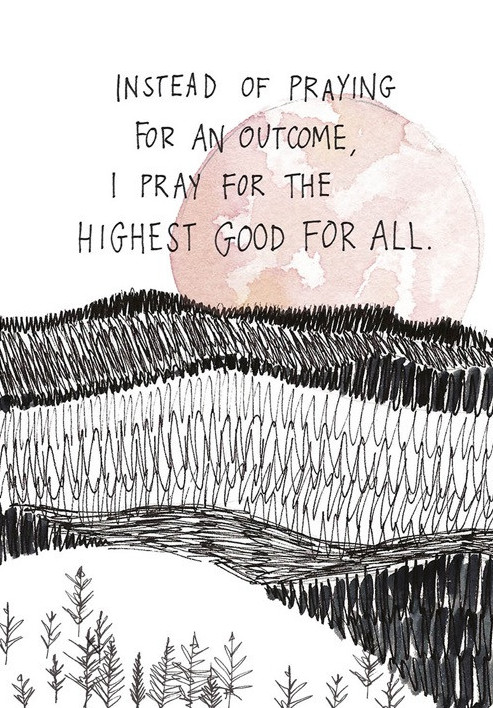 INSTEAD OF PRAYING
FOR AN OUTCOME,
I PRAY FOR THE
HIGHEST GOOD FOR ALL.